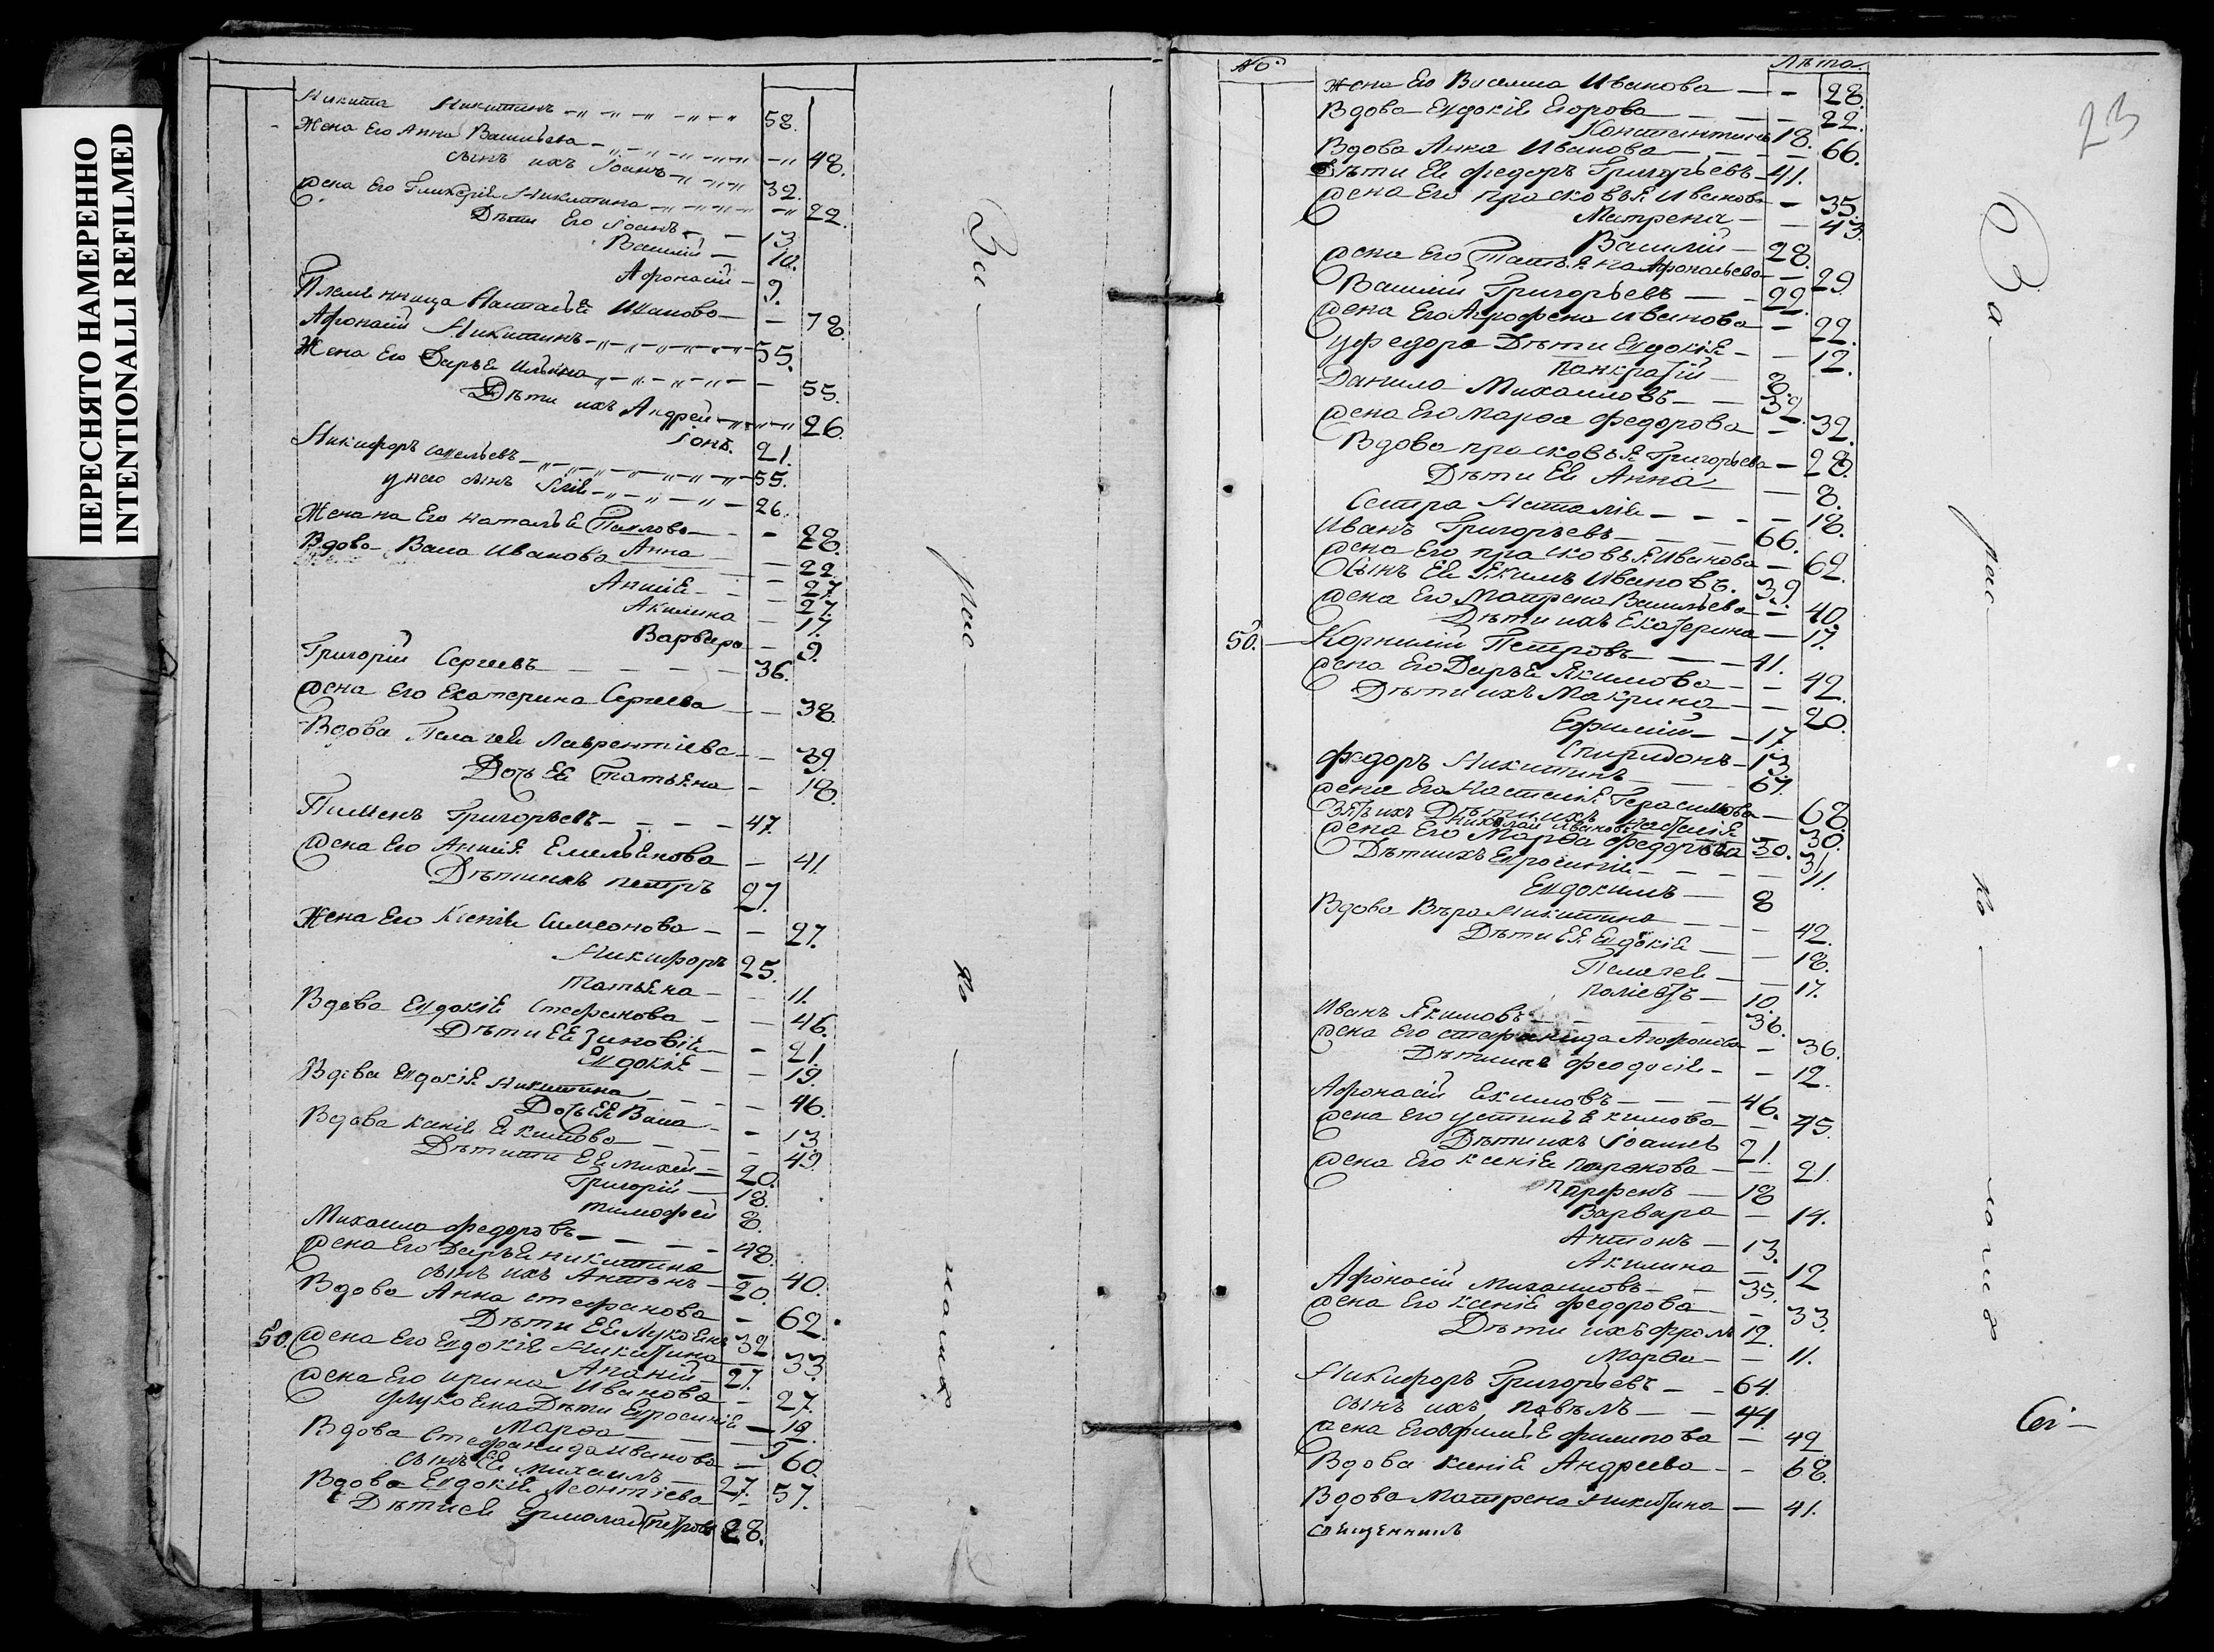 ПЕРЕСНЯТО НАМЕРЕННО
INTENTIONALLI REFILMED
Никита Никитинъ 58.
Жена Его Анна Васильева 48.
сынъ ихъ Іоанъ 32.
Жена Его Гликерія Никитина 22.
Дѣти Его Іоанъ 13.
Василій 10.
Афонасій 9.
Племянница Наталья 78.
Афонасій Никитинъ 55.
Жена Его Дарья Ильина 55.
Дѣти ихъ Андрей 26.
Іонъ. 21.
Никифоръ 55.
у него сынъ Ілія 26.
Женана Его Наталья Павлова 28.
Анна 22.
Вдова Васа Иванова 27.
Анисія 27.
Акилина 17.
Варвара 9.
Григорій Сергеевъ 36.
Жена Его Екатерина Сергеева 38.
Вдова Пелагея Лаврентіева 39.
Дочь Ея Татьяна 18.
Пименъ Григорьевъ 47.
Жена Его Анисія Емельянова 41.
Дѣти ихъ петръ 27.
Жена Его Ксенія Симеонова 27.
Никифоръ 25.
Татьяна 11.
Вдова Евдокія Стефанова 46.
Дѣти Ея Зиновія 21.
Евдокія 19.
Вдова Евдокія Никитина 46.
Дочь Ея Васа 13.
Вдова Ксенія Екимова 49.
Дѣти Ея Михей 20.
Григорій 18.
тимофей 8.
Михаило федоровъ 48.
Жена Его Дарья никитина 40.
сынъ ихъ Антонъ 20.
Вдова Анна стефанова 62.
Дѣти Ея Лукоянъ 32.
50. Жена Его Евдокія Никитина 33.
Ананій 27.
Жена Его ирина Иванова 27.
у Лукояна Дѣти Евросинія 12.
Марфа
Вдова Стефанида Иванова 60.
сынъ Ея Михаилъ 27.
Вдова Евдокія Леонтіева 57.
Дѣти Ея Ермолай петровъ 28.
За рас ко ника
№ Лѣта.
23
Жена Его Васелиса Иванова 28.
Вдова Евдокія Егорова 22.
Константинъ 18.
Вдова Анна Иванова 66.
Дѣти Ея федоръ Григорьевъ 41.
Жена Его прасковья Иванова 35.
Матрена 43.
Василій 28.
Жена Его Татьяна Афонасьева 29.
Василій Григорьевъ 22.
Жена Его Агрофена Иванова 22.
у федора Дѣти Евдокія 12.
панкратій 8.
Данило Михаиловъ 32.
Жена Его марфа федорова 32.
Вдова прасковья Григорьева 28.
Дѣти Ея Анна 8.
Сестра Наталія 18.
Иванъ Григорьевъ 66.
Жена Его прасковья Иванова 62.
Сынъ Ея Якимъ Ивановъ. 39.
Жена Его Матрена Васильева 40.
Дѣти ихъ Екатерина 17.
50. Корнилій Петровъ 41.
Жена Его Дарья Якимова 42.
Дѣти ихъ Макрина 20.
Ефимій 17.
Спиридонъ 13.
федоръ Никитинъ 67.
Жена Его Настасія Герасимова 68.
Дѣти ихъ Настасія 30.
Зять ихъ Николай Ивановъ 30.
Жена Его Марфа федорова 31.
Дѣти ихъ Евросинія 11.
Евдокимъ 8
Вдова Вѣра Никитина 42.
Дѣти Ея Евдокія 18.
Пелагея 17.
полиевтъ 10.
Иванъ Якимовъ 36.
Жена Его стефанида Агафонова 36.
Дѣти ихъ феодосія 12.
Афонасій Екимовъ 46.
Жена Его устинья Екимова 45.
Дѣти ихъ Іоаннъ 21.
Жена Его Ксенія 21.
Парфенъ 18
Варвара 14.
Антонъ 13.
Акилина 12
Афонасій Михаиловъ 35.
Жена Его Ксенія федорова 33.
Дѣти ихъ фролъ 12.
Марфа 11.
Никифоръ Григорьевъ 64.
сынъ ихъ павелъ 44.
Жена Его Ефимія филипова 42.
Вдова Ксенія Андреева 68.
Вдова Матрена Никитина 41.
священникъ
За рас ко